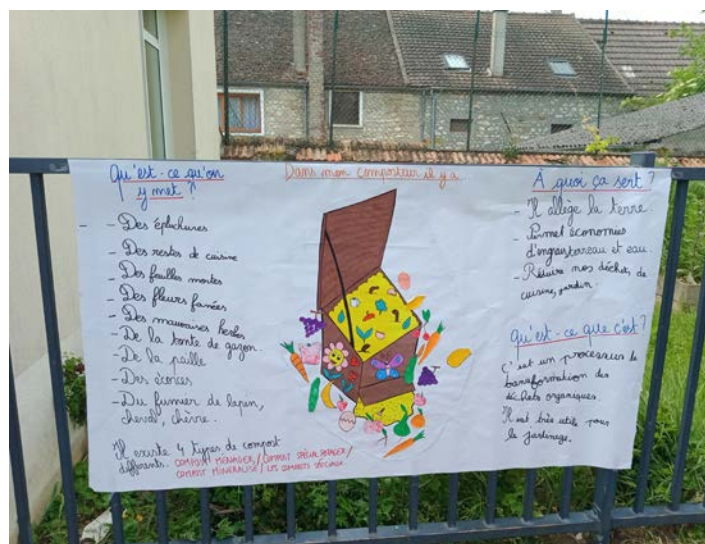 Dans mon composteur il y a...
Qu'est-ce qu'on
y met ?
- Des épluchures
- Des restes de cuisine
- Des feuilles mortes
- Des fleurs fanées
- Des mauvaises herbes
- De la tonte de gazon.
- De la paille
- Des écorces
- Du fumier de lapin,
cheval, chèvre.
Il existe 4 types de compost
différents. COMPOST MÉNAGER / COMPOST SPÉCIAL POTAGER /
COMPOST MINÉRALISÉ / LES COMPOSTS SPÉCIAUX
À quoi ça sert ?
- Il allège la terre.
- Permet économies
d'engrais, terreau et eau.
- Réduire nos déchets de
cuisine, jardin.
Qu'est-ce que c'est ?
C'est un processus de
transformation des
déchets organiques.
Il est très utile pour
le jardinage.